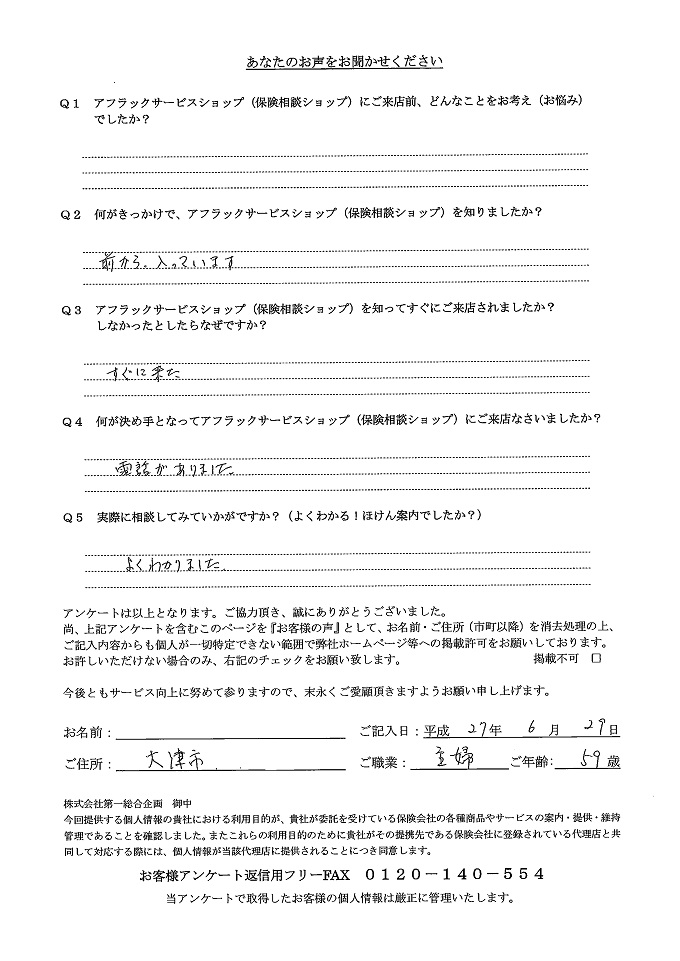 あなたのお声をお聞かせください
Q1 アフラックサービスショップ(保険相談ショップ)にご来店前、どんなことをお考え(お悩み)
でしたか?
Q2 何がきっかけで、アフラックサービスショップ(保険相談ショップ)を知りましたか?
前から入っています
Q3 アフラックサービスショップ(保険相談ショップ)を知ってすぐにご来店されましたか?
しなかったとしたらなぜですか?
すぐに来た
Q4 何が決め手となってアフラックサービスショップ(保険相談ショップ)にご来店なさいましたか?
電話がありました
Q5 実際に相談してみていかがですか?(よくわかる!ほけん案内でしたか?)
よくわかりました
アンケートは以上となります。ご協力頂き、誠にありがとうございました。
尚、上記アンケートを含むこのページを『お客様の声』として、お名前・ご住所(市町以降)を消去処理の上、
ご記入内容からも個人が一切特定できない範囲で弊社ホームページ等への掲載許可をお願いしております。
お許しいただけない場合のみ、右記のチェックをお願い致します。 掲載不可 □
今後ともサービス向上に努めて参りますので、末永くご愛顧頂きますようお願い申し上げます。
お名前: ご記入日:平成 27年 6月 29日
ご住所: 大津市 ご職業: 主婦 ご年齢: 59歳
株式会社第一総合企画 御中
今回提供する個人情報の貴社における利用目的が、貴社が委託を受けている保険会社の各種商品やサービスの案内・提供・維持
管理であることを確認しました。またこれらの利用目的のために貴社がその提携先である保険会社に登録されている代理店と共
同して対応する際には、個人情報が当該代理店に提供されることにつき同意します。
お客様アンケート返信用フリーFAX 0120-140-554
当アンケートで取得したお客様の個人情報は厳正に管理いたします。